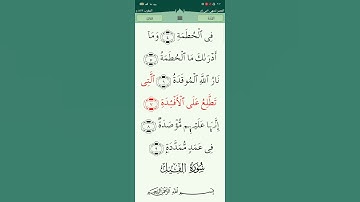 فِى ٱلْحُطَمَةِ ۝ وَمَآ
أَدْرَىٰكَ مَا ٱلْحُطَمَةُ ۝
نَارُ ٱللَّهِ ٱلْمُوقَدَةُ ۝ ٱلَّتِى
تَطَّلِعُ عَلَى ٱلْأَفْـِٔدَةِ ۝
إِنَّهَا عَلَيْهِم مُّؤْصَدَةٌ ۝
فِى عَمَدٍ مُّمَدَّدَةٍۭ ۝
سُورَةُ الفِيلِ
بِسْمِ اللَّهِ الرَّحْمَٰنِ الرَّحِيمِ